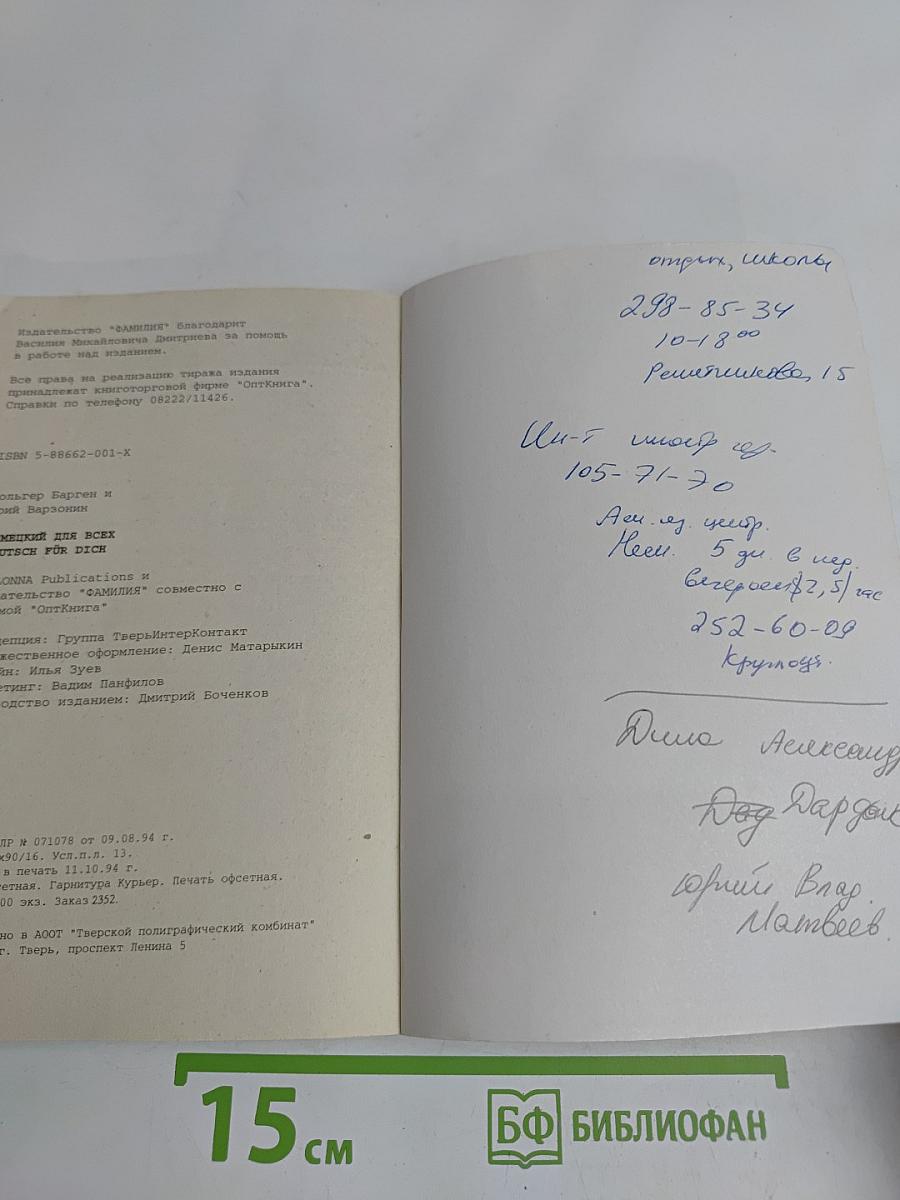 Издательство "ФАМИЛИЯ" благодарит
Василия Михайловича Дмитриева за помощь
в работе над изданием.
Все права на реализацию тиража издания
принадлежат книготорговой фирме "ОптКнига".
Справки по телефону 08222/11426.
ISBN 5-88662-001-X
ольгер Барген и
рий Варзонин
МЕЦКИЙ ДЛЯ ВСЕХ
UTSCH FÜR DICH
LONNA Publications и
ательство "ФАМИЛИЯ" совместно с
мой "ОптКнига"
цепция: Группа ТверьИнтерКонтакт
жественное оформление: Денис Матарыкин
йн: Илья Зуев
етинг: Вадим Панфилов
одство изданием: Дмитрий Боченков
ЛР № 071078 от 09.08.94 г.
х90/16. Усл.п.л. 13.
в печать 11.10.94 г.
сетная. Гарнитура Курьер. Печать офсетная.
00 экз. Заказ 2352.
но в АООТ "Тверской полиграфический комбинат"
г. Тверь, проспект Ленина 5
отдых, школы
298-85-34
10-18 00
Решетникова, 15
Ин-т иностр
105-71-70
яз. центр.
Нем. 5 дн. в нед.
час
252-60-09
Александ
Дардык
Юрий Влад.
Матвеев.
15 см
БФ БИБЛИОФАН